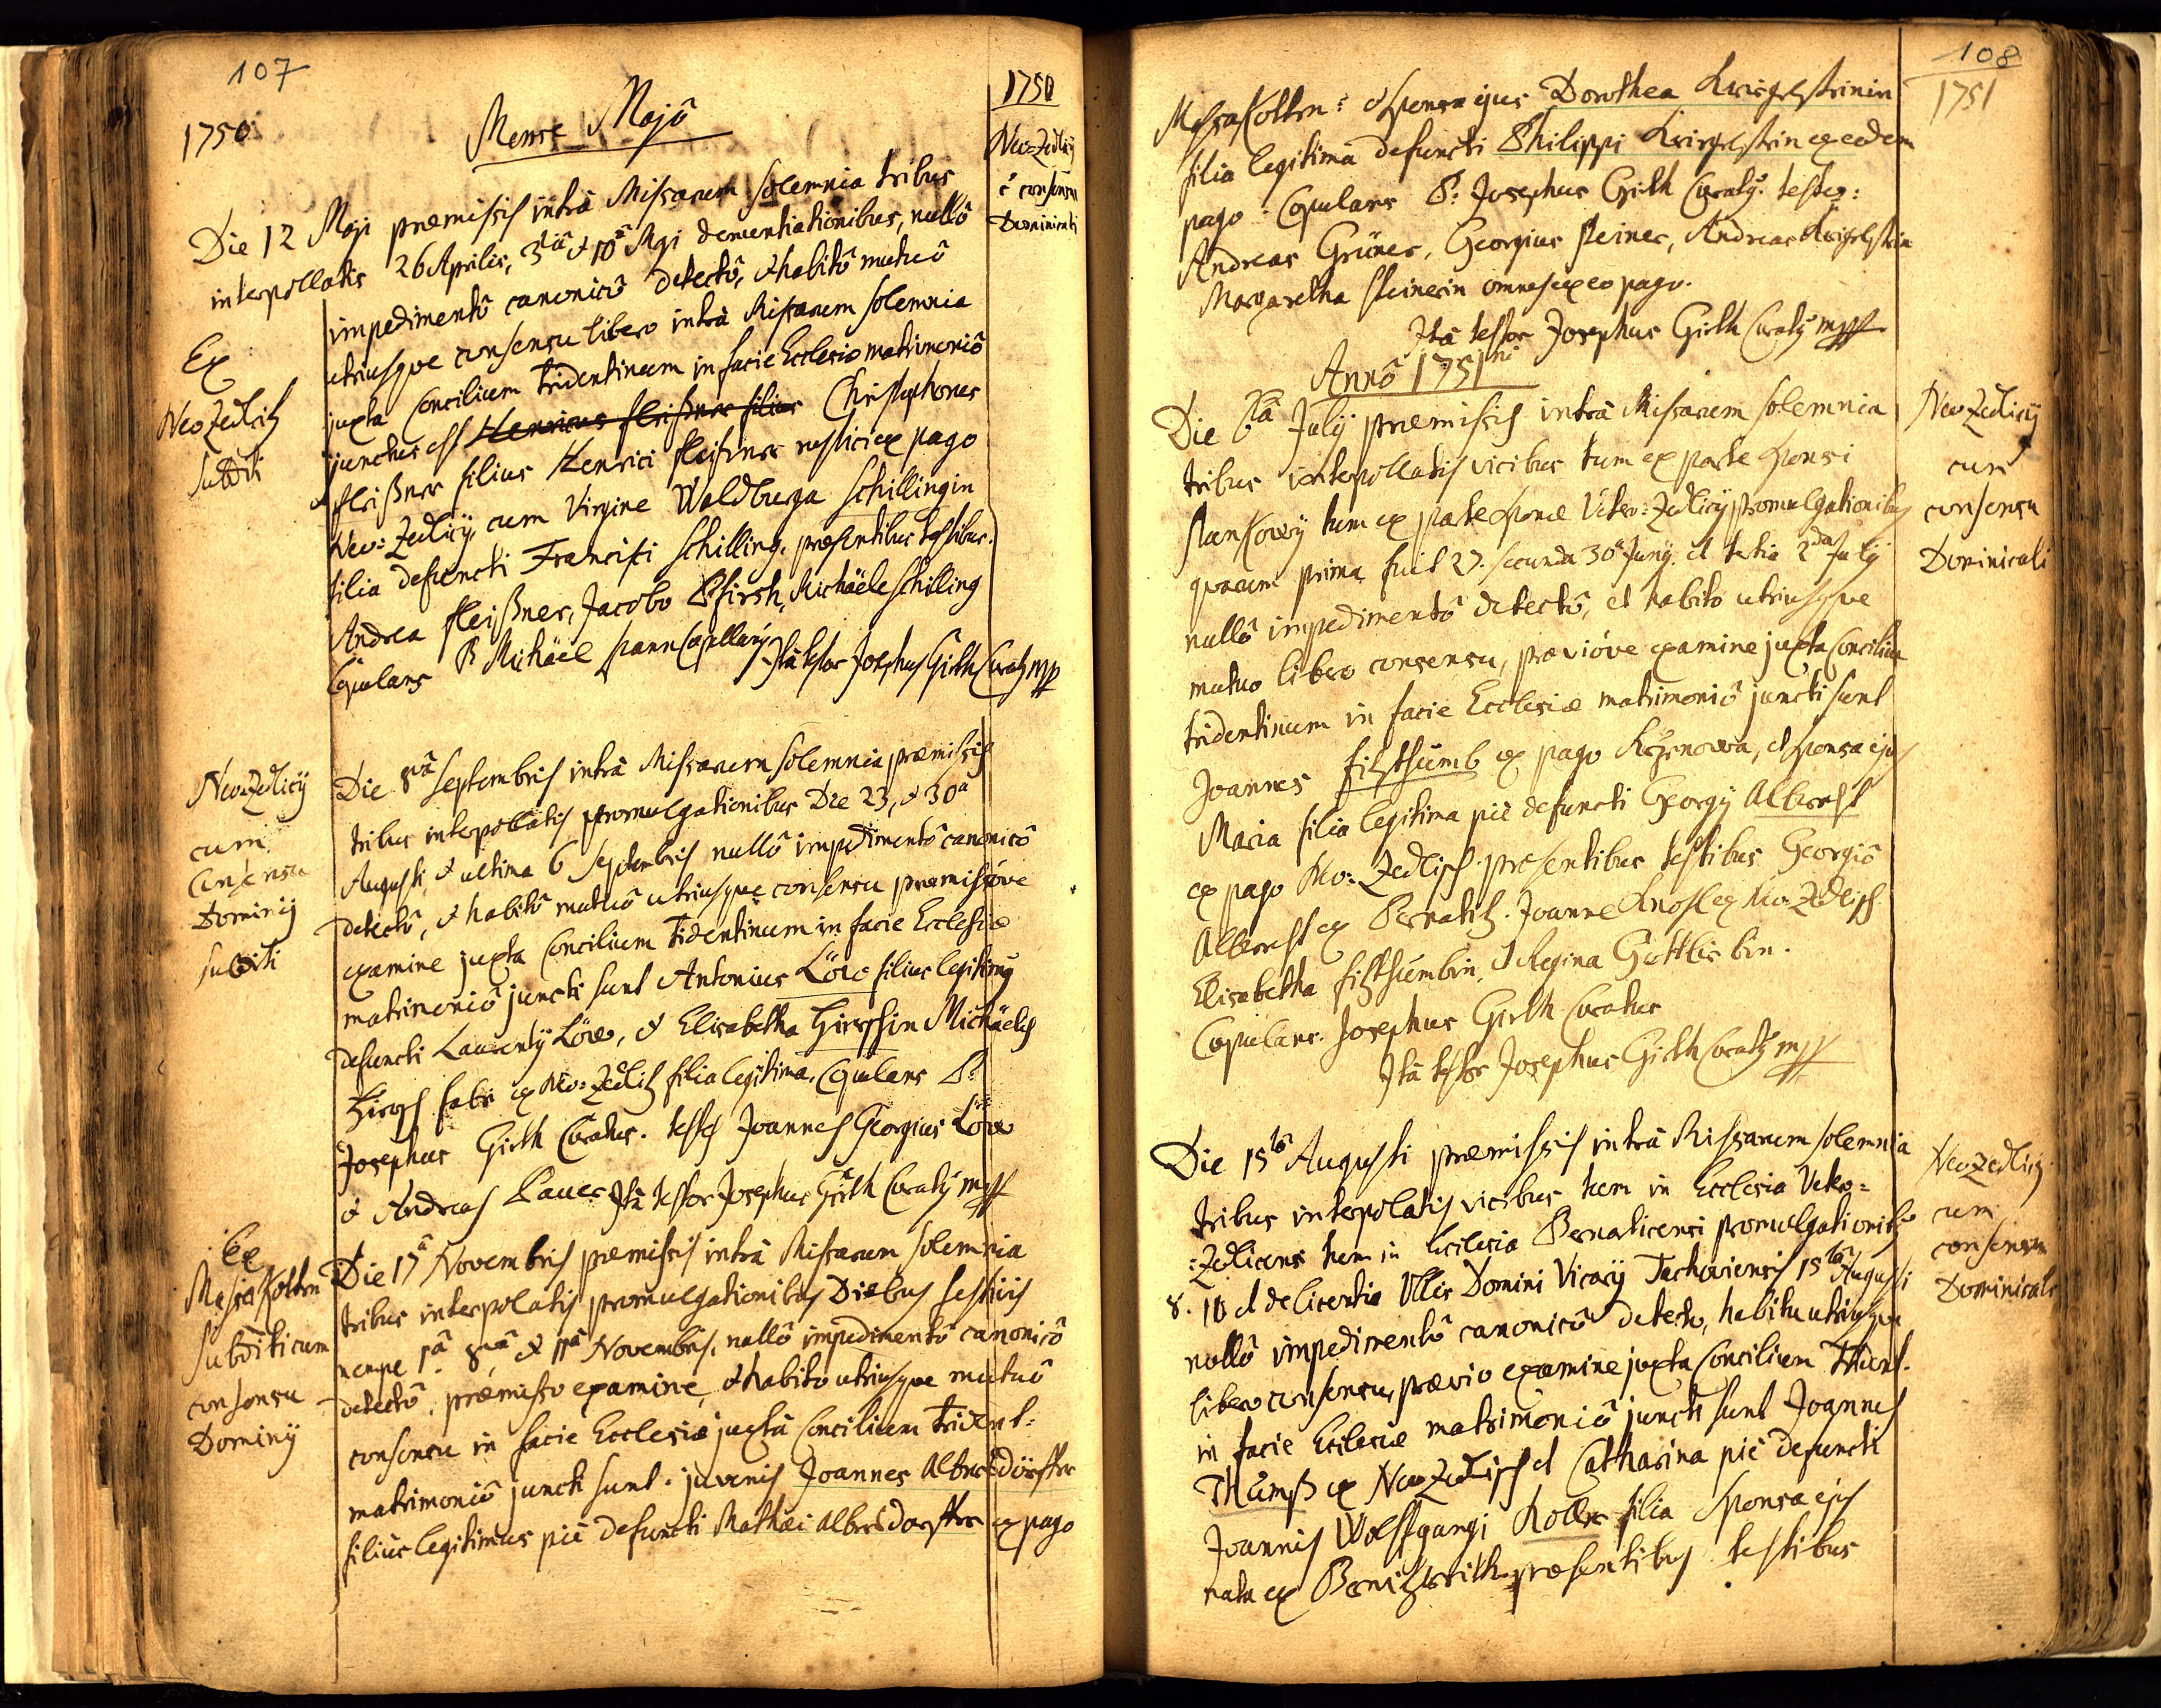 107
1750
Mense Majô
1750
Neo=Zedlicÿ
è consensu
Dominicali
Die 12 Maji præmissis intrà Missarum solemnia tribus
interpollatis 26 Aprilis, 3tiâ & 10â Maji denuntiationibus, nullô
impedimentô canonicô detectô, & habitô mutuô
utriusque consensu libero intrà Missarum solemnia
juxta Concilium tridentinum in facie Ecclesiæ matrimoniô
junctus est Henricus fleißner filius Christophorus
fleißner filius Henrici fleißner rustici ex pago
Neo=Zedlicÿ, cum Virgine Waldburga schillingin
filia defuncti Francisci schilling, præsentibus testibus.
Andrea fleißner, Jacobo Pfirsh, Michäele schilling
Copulans P Michäel spann Capellanÿ. Ità testor Josephus Girth Curatÿ mpp
Ex
Neo Zedlitz
subditi
Neo=Zedlicÿ
cum
Consensu
Dominÿ
subditi
Die 8vâ septembris intrà Missarum solemnia præmissis
tribus interpollatis promulgationibus Die 23, & 30a
Augusti, & ultima 6 septembris nullô impedimentô canonicô
detectô, & habitô mutuô utriusque consensu præmissóve
examine juxta Concilium Tidentinum in facie Ecclesiæ
matrimoniô juncti sunt Antonius Löw filius legitimÿ
defuncti Laurentÿ Löw, & Elisabetha Hirschin Michäelis
Hirsch fabri ex Neo=Zedlitz filia legitima. Copulans P:
Josephus Girth Curatus. testes Joannes Georgius Löw
& Andreas Pauer Ità testor Josephus Girth Curatÿ mpp
Ex
subditi cum
consensu
Dominÿ
Die 17â Novembris præmissis intrà Missarum solemnia
tribus interpolatis promulgationibus Diebus festivis
nempe 1â 8vâ & 11â Novembris, nullô impedimentô canonicô
detectô, præmisso examine, & habito utriusque mutuô
consensu in facie Ecclesiæ juxtà Concilium Trident:
matrimoniô juncti sunt. juvenis Joannes Albersdörffer
filius legitimus piè defuncti Mathæi Albersdorffer ex pago
108
1751
& sponsa ejus Dorothea Krirglstrinin
filia legitima defuncti Philippi Krirglstrin ex eodem
pago: Copulans P: Josephus Girth Curatÿ. testes:
Andreas Grüner, Georgius steiner, Andreas Krirglstrin
Margaretha steinerin omnes ex eo pago.
Ità testor Josephus Girth Curatÿ mpp
Annô 1751mi
Neo Zedlicÿ
cum
consensu
Dominicali
Die 6tâ Julÿ præmissis intrà Missarum solemnia
tribus interpollatis vicibus tum ex parte sponsi
tum ex parte sponsæ Vetero=Zedlicÿ promulgationibus
quarum prima fuit 27. secunda 30â Junÿ. et tertia 2da Julÿ
nullô impedimentô detectô, et habito utriusque
mutuo libero consensu, præviôve examine juxta Concilium
tridentinum in facie Ecclesiæ matrimoniô juncti sunt
Joannes fizthumb ex pago, et sponsa ejus
Maria filia legitima piè defuncti Georgÿ Albrecht
ex pago Neo=Zedlisch. præsentibus testibus Georgiô
Albrecht ex Pernatitz. Joanne ex Neo=Zedlisch.
Elisabetha fizthumbin, & Regina Gottlis bin.
Copulans. Josephus Girth Curatus
Ità testor Josephus Girth Curatÿ mpp
Neo Zedlitz
cum
consensu
Dominicali
Die 15tâ Augusti præmissis intrà Missarum solemnia
tribus interpolatis vicibus tum in Ecclesia Vetero=
=Zedlicensi tum in Ecclesia Pernaticensi promulgationibÿ
8. 10 et de licentia Domini Vicarÿ Tachoviensis 15tâ Augusti
nullô impedimentô canonicô detecto, habitu utriusque
libero consensu, prævio examine juxta Concilium Trident.
in facie Ecclesiæ matrimoniô juncti sunt Joannes
Thumß ex Neo Zedlisch et Catharina piè defuncti
Joannis Wolfgangi Koller filia sponsa ejus
nata ex præsentibus testibus